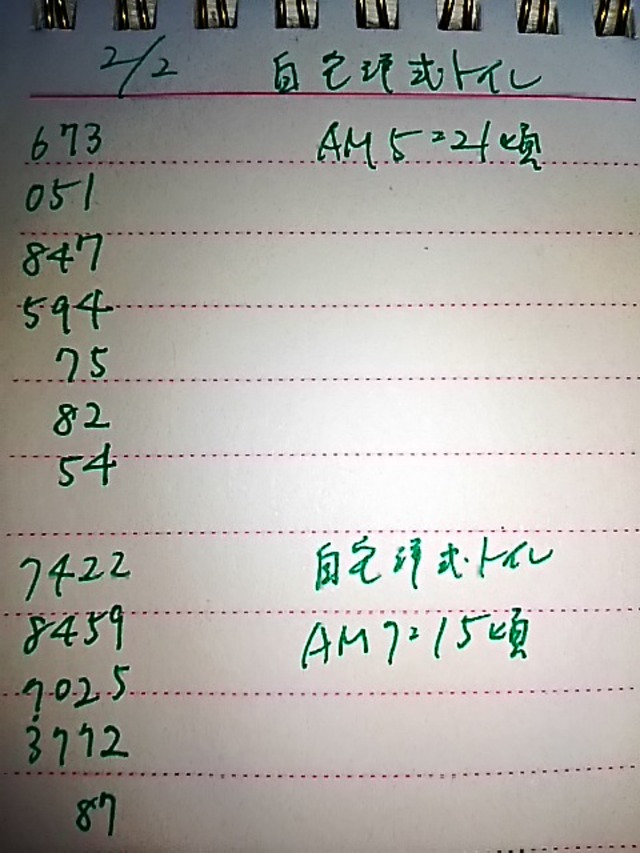 2/2 自宅洋式トイレ
673 AM5:21頃
051
847
594
75
82
54
7422 自宅洋式トイレ
8459 AM7:15頃
7025
3772
87